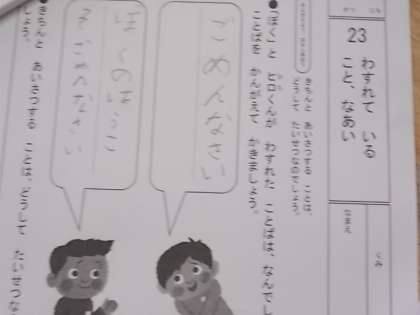 23
わすれて いる
こと、なあい
なまえ
くみ
きちんと あいさつする ことは、
どうして たいせつなのでしょう。
●「ぼく」と ヒロくんが わすれた ことばは、なんでし
ことばを かんがえて かきましょう。
ごめんなさい
ぼくのほうこ
そごめんなさい
●きちんと あいさつする ことは、どうして たいせつな
しょう。